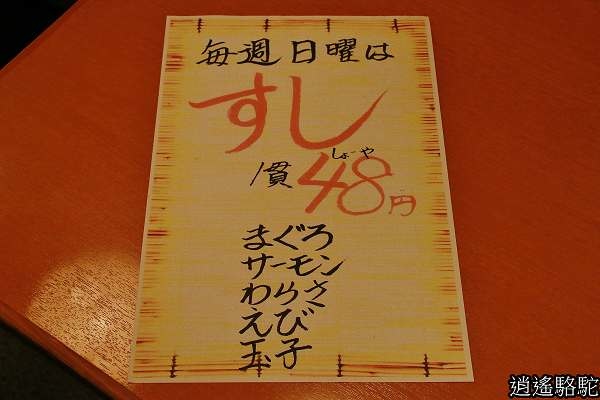 毎週日曜は
すし
しょーや
1貫48円
まぐろ
サーモン
わらさ
えび
玉子
逍遙駱駝